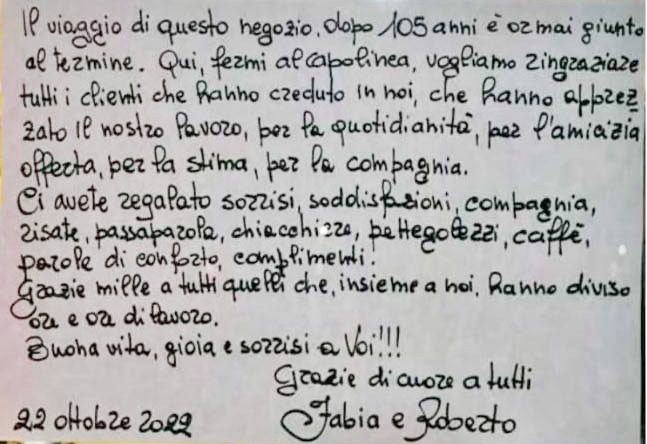 Il viaggio di questo negozio, dopo 105 anni è ormai giunto
al termine. Qui, fermi al capolinea, vogliamo ringraziare
tutti i clienti che hanno creduto in noi, che hanno apprez
zato il nostro lavoro, per la quotidianità, per l'amicizia
offerta, per la stima, per la compagnia.
Ci avete regalato sorrisi, soddisfazioni, compagnia,
risate, passaparola, chiacchiere, pettegolezzi, caffè,
parole di conforto, complimenti.
Grazie mille a tutti quelli che, insieme a noi, hanno diviso
ore e ore di lavoro.
Buona vita, gioia e sorrisi a Voi!!!
Grazie di cuore a tutti
22 ottobre 2022 Fabia e Roberto